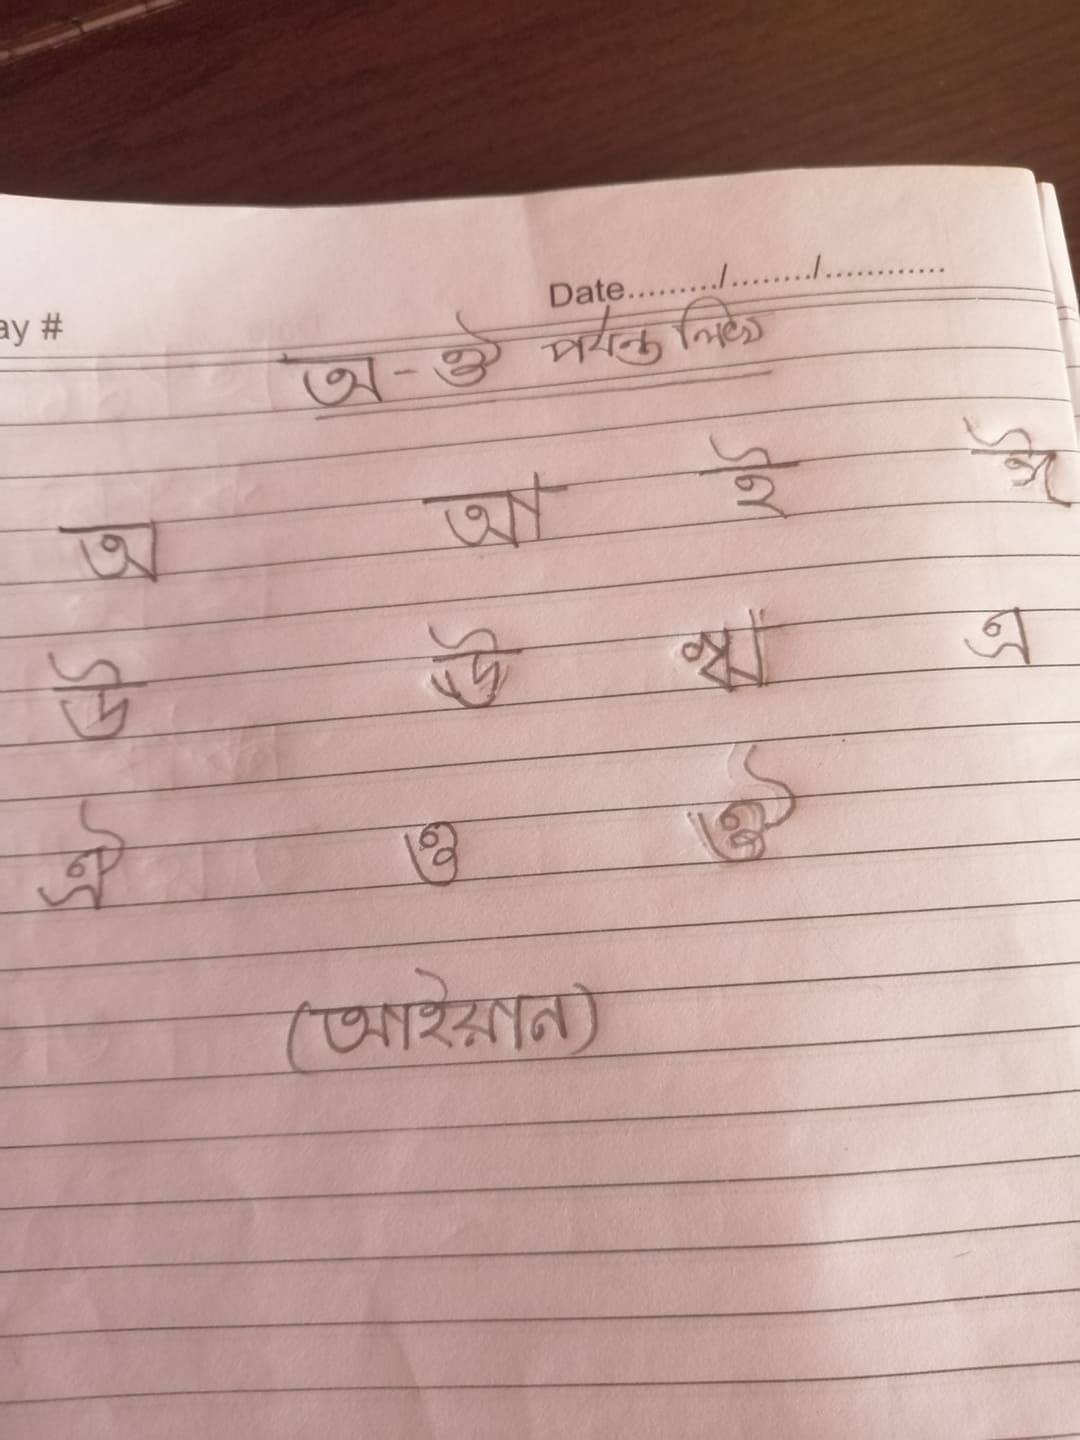 Date........./........./............
ay #
অ - ঔ পর্যন্ত লিখ
অ আ ই ঈ
উ ঊ ঋ এ
ঐ ও ঔ
(আইয়ান)